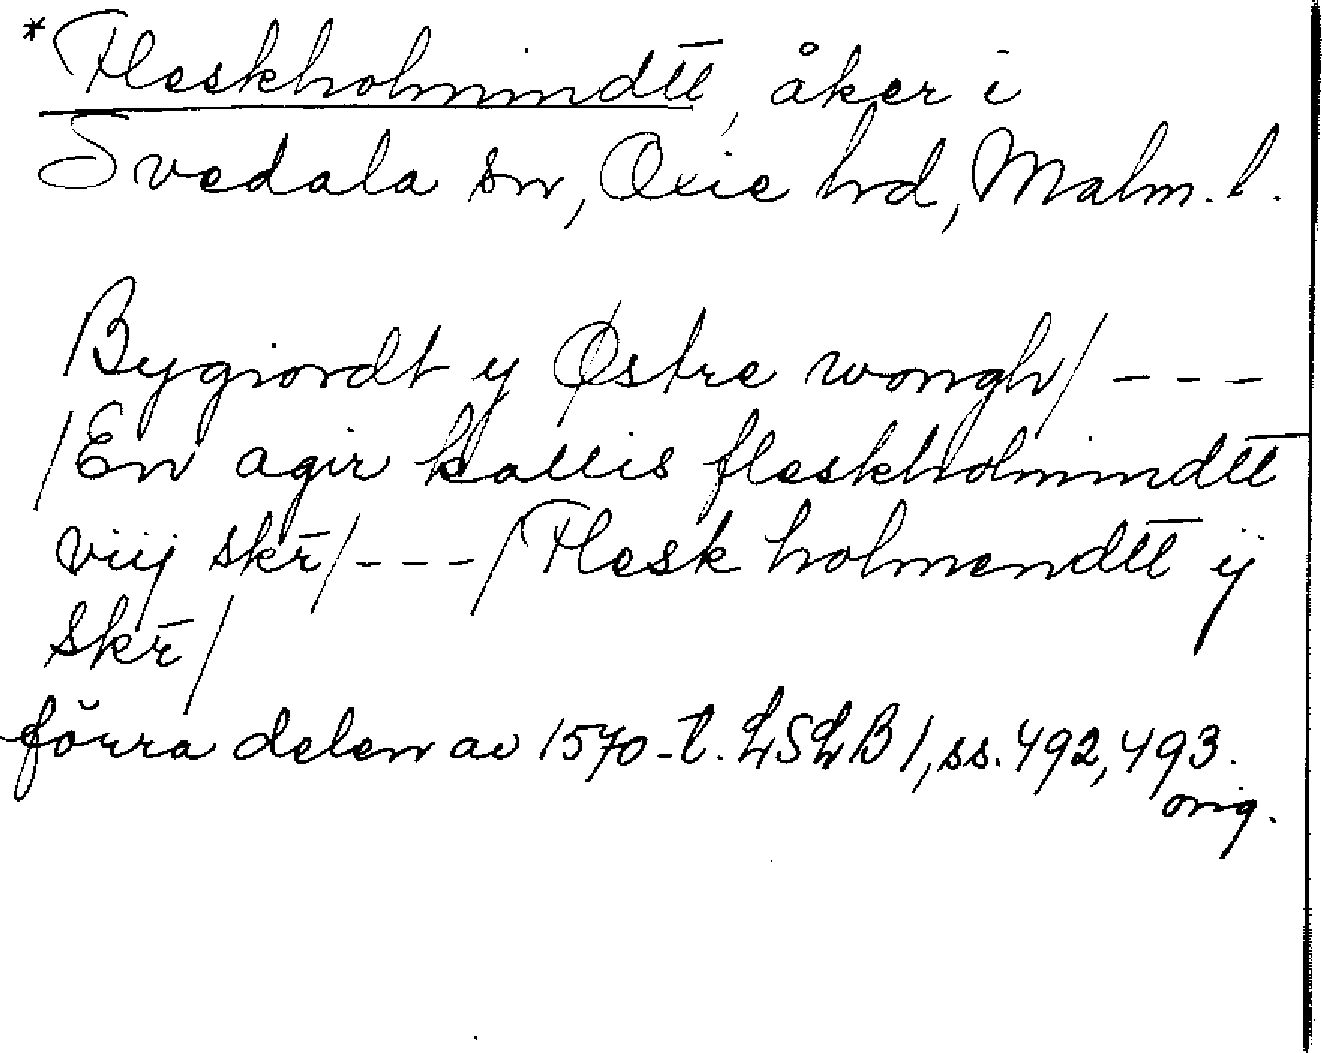 *Fleskholmindtt̅, åker i
Svedala sn, Oxie hd, Malm. l.
Bygiordt y Østre wongh/ - - -
/En agir kallis fleskholmindtt̅
viij skr̅/ - - - /Flesk holmendtt̅ ij
skr̅/
förra delen av 1570-t. LSLB 1, ss. 492, 493.
orig.